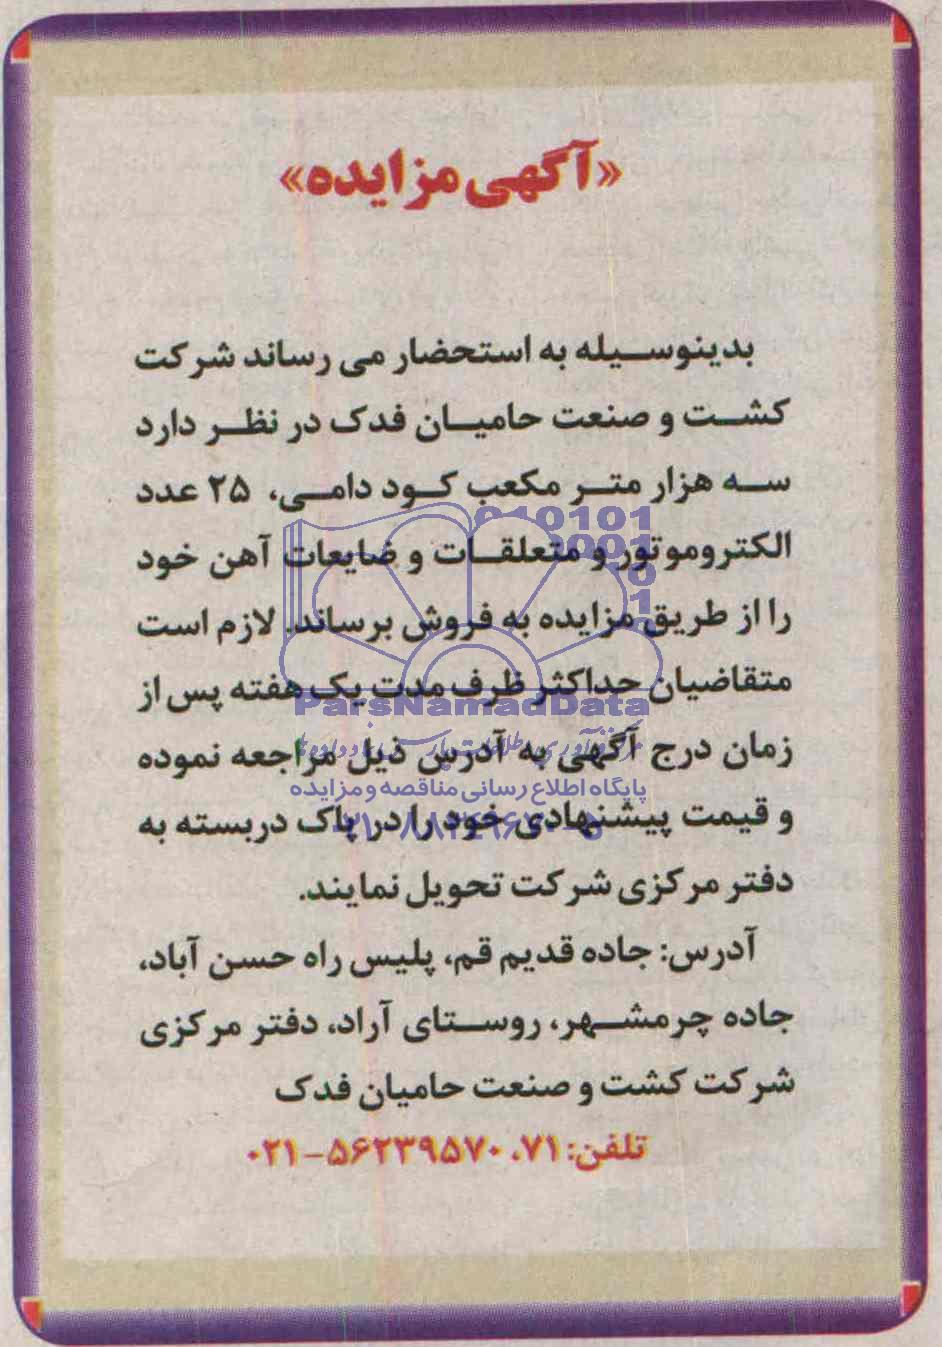 «آگهی مزایده»
بدینوسیله به استحضار می رساند شرکت
کشت و صنعت حامیان فدک در نظر دارد
سه هزار متر مکعب کود دامی، ۲۵ عدد
الکتروموتور و متعلقات و ضایعات آهن خود
را از طریق مزایده به فروش برساند. لازم است
متقاضیان حداکثر ظرف مدت یک هفته پس از
زمان درج آگهی به آدرس ذیل مراجعه نموده
و قیمت پیشنهادی خود را در پاک دربسته به
دفتر مرکزی شرکت تحویل نمایند.
آدرس: جاده قدیم قم، پلیس راه حسن آباد،
جاده چرمشهر، روستای آراد، دفتر مرکزی
شرکت کشت و صنعت حامیان فدک
تلفن: ۷۱، ۵۶۲۳۹۵۷۰-۰۲۱
010101
ParsNamadData
پایگاه اطلاع رسانی مناقصه و مزایده